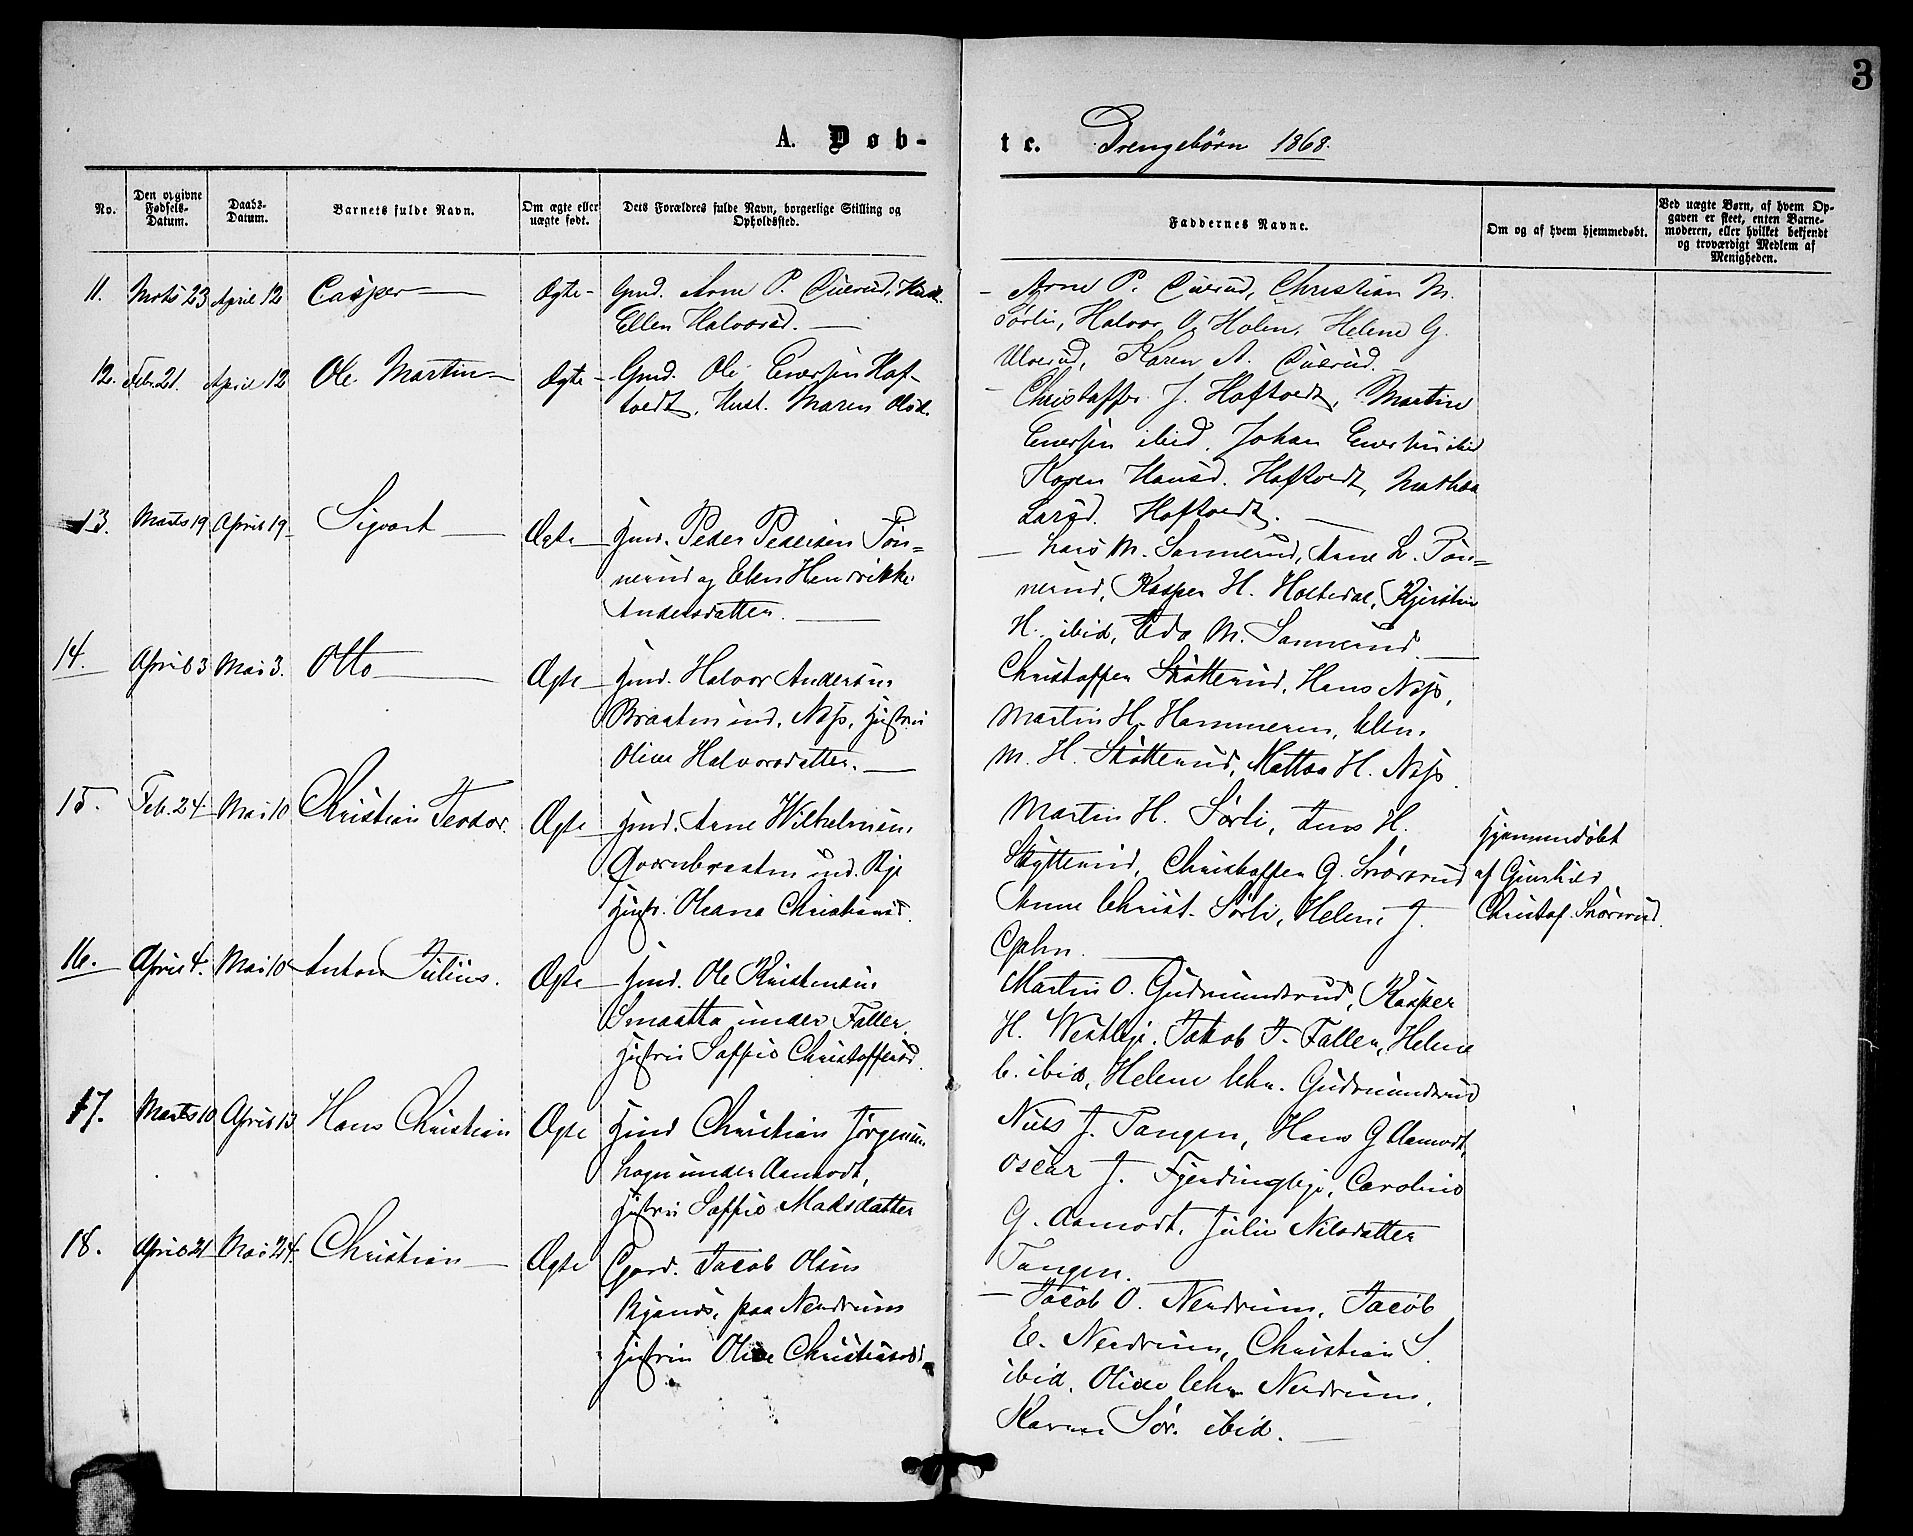 3
A. Døb-
te. Drengebørn 1868.
No.
Den opgivne Fødsels-Datum.
Daabs-Datum.
Barnets fulde Navn.
Om ægte eller uægte født.
Dets Forældres fulde Navn, borgerlige Stilling og Opholdssted.
Faddernes Navne.
Om og af hvem hjemmedøbt.
Ved uægte Børn, af hvem Opgaven er skeet, enten Barnemoderen, eller hvilket bekjendt og troværdigt Medlem af Menigheden.
11. Mrts 23 April 12 Casper Ægte Gmd. Arne P.
Ellen Halvorsd.
Arne P. Christian M.
Sørli, Halvor O. Holen, Helene G.
Ulverud, Karen A.
12. Febr. 21. April 12 Ole Martin Ægte Gmd. Ole Enersen Haf-
tvedt, Hust. Maren Olsd.
Christoffer J. Haftvedt, Martin
Enersen ibid, Johan Enersen ibid
Karen Hansd. Haftvedt, Mathea
Larsd. Haftvedt.
13. Marts 19 April 19 Sigvart Ægte Hmd. Peder Pedersen Tøn-
nerud og Elen Henrikke
Andersdatter.
Lars M. Sannerud, Arne L. Tøn-
nerud, Kasper H. Holtedal, Kjerstin
H. ibid, Eda M. Sannerud.
14. April 3 Mai 3. Otto Ægte Hmd. Halvor Andersen
Braaten und. Næs, Hustru
Oline Halvorsdatter.
Christoffer Skøtterud, Hans Næs,
Martin H. Hammeren, Elen
M. H. Skøtterud, Mathea H. Næs.
15. Feb. 24. Mai 10 Christian Teodor. Ægte Hmd. Arne Wilhelmsen
Qværnbraaten und. Bye
Hustr. Oleana Christiansd.
Martin H. Sørli, Jens H.
Skytterud, Christoffer G. Snøsrud
Anne Christ. Sørli, Helene J.
Hjemmedøbt
af Gunhild
Christof. Snøsrud.
16. April 4. Mai 10 Anton Julius. Ægte Hmd. Ole Kristensen
Smaatta under Faller
Hustru Soffie Christoffersd.
Martin O. Gudmundsrud, Kasper
H. Westbye, Jakob J. Faller, Helene
C. ibid, Helene Chr. Gudmundsrud
17. Marts 10 April 13 Hans Christian Ægte Hmd Christian Jørgensen
Hagen under Aamodt,
Hustru Soffie Madsdatter
Niels J. Tangen, Hans G Aamodt,
Oscar J. Fjerdingbye, Caroline
G. Aamodt, Julie Nilsdatter
Tangen.
18. April 21 Mai 24. Christian Ægte Gaard. Jacob Olsen
paa Nerdrum
Hustru Oline Christiansd.
Jacob O. Nerdrum, Jacob
E. Nerdrum, Christian S.
ibid, Oline Chr. Nerdrum,
Karen Sør. ibid.